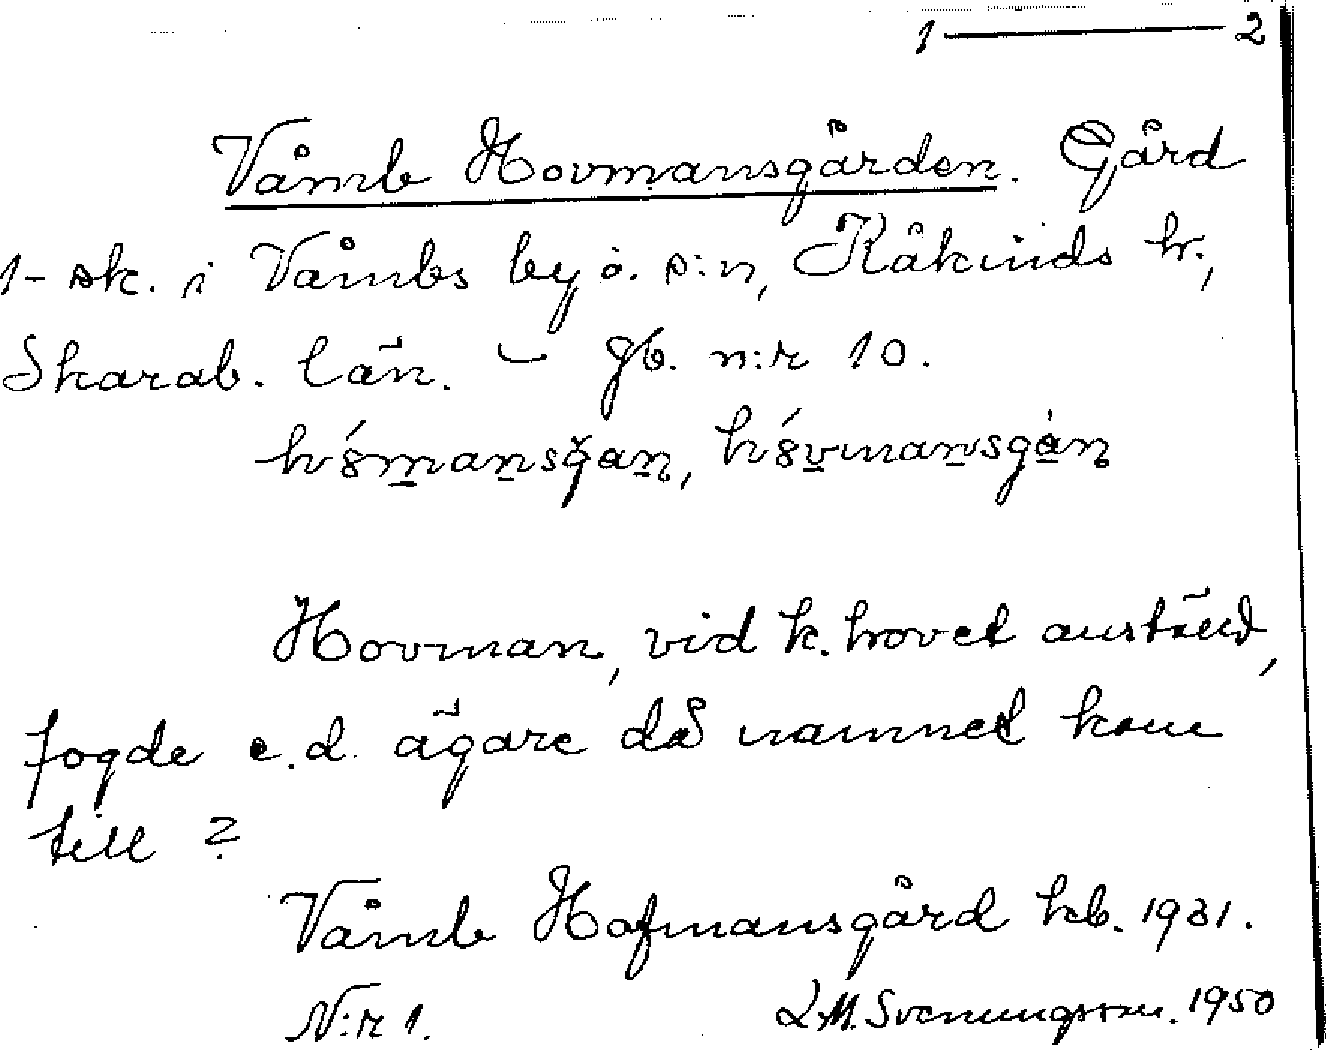 1 — 2
Våmb Hovmansgården. Gård
1-sk. i Våmbs by o. s:n, Kåkinds hr.,
Skarab. län. – gb. n:r 10.
Hovman, vid k. hovet anställd,
fogde e.d. ägare då namnet kom
till ?
Våmb Hofmansgård kb. 1931.
N:r 1. L.M. Svenungsson. 1950